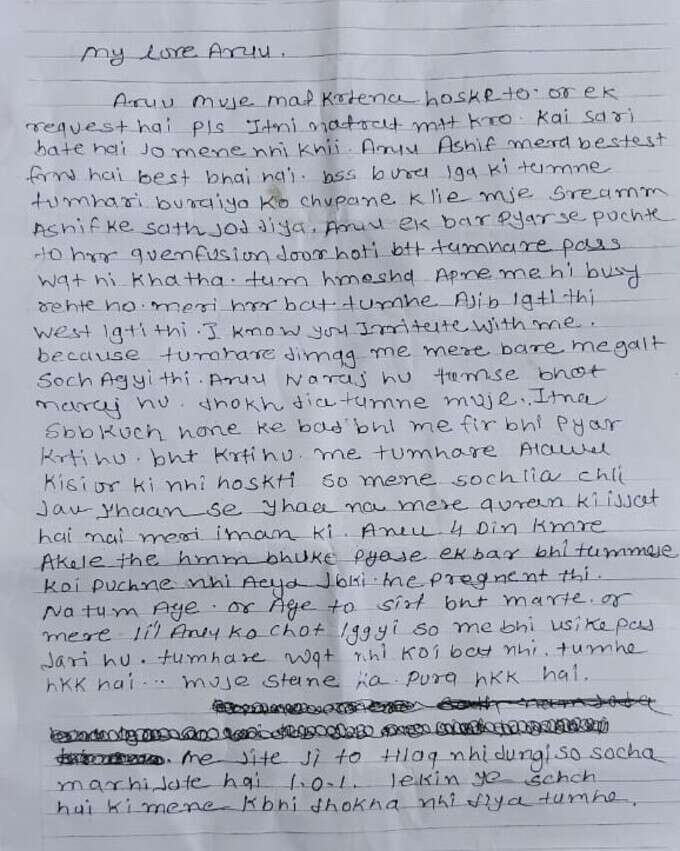 My love Aruu.
Aruu muje maf krdena hoske to. or ek
request hai pls Itni nafrat mtt kro. Kai sari
bate hai Jo mene nhi khii. Aruu Ashif mera bestest
frnd hai best bhai hai. bss bura lga ki tumne
tumhari buraiyo ko chupane k lie mje Sreamm
Ashif ke sath Jod diya. Aruu ek bar pyar se puchte
to hrr quenfusion door hoti btt tumhare pass
wqt hi kha tha. tum hmesha Apne me hi busy
rehte ho. meri hrr bat tumhe Ajib lgti thi
west lgti thi. I know you Irritate with me.
because tumhare dimag me mere bare me galt
soch Agyi thi. Aruu Naraj hu tumse bhot
naraj hu. dhokh dia tumne muje. Itna
sbb kuch hone ke bad bhi me fir bhi pyar
krti hu. bht krti hu. me tumhare Alawa
kisi or ki nhi hoskti so mene soch lia chli
Jau yhaan se yhaa na mere quran ki issat
hai nai meri iman ki. Aruu 4 Din kmre
Akele the hmm bhuke pyase ek bar bhi tumme se
koi puchne nhi Aeya Jbki me pregnent thi.
Na tum Aye. or Aye to sirf bht marte. or
mere li'l Aruy ko chot lggyi so me bhi usike pas
Jari hu. tumhare wqt nhi koi bat nhi. tumhe
hkk hai... muje stane ka pura hkk hai.
me jite ji to tlaq nhi dungi so socha
mar hi Jate hai 1.0.1. lekin ye schch
hai ki mene kbhi dhokha nhi diya tumhe.